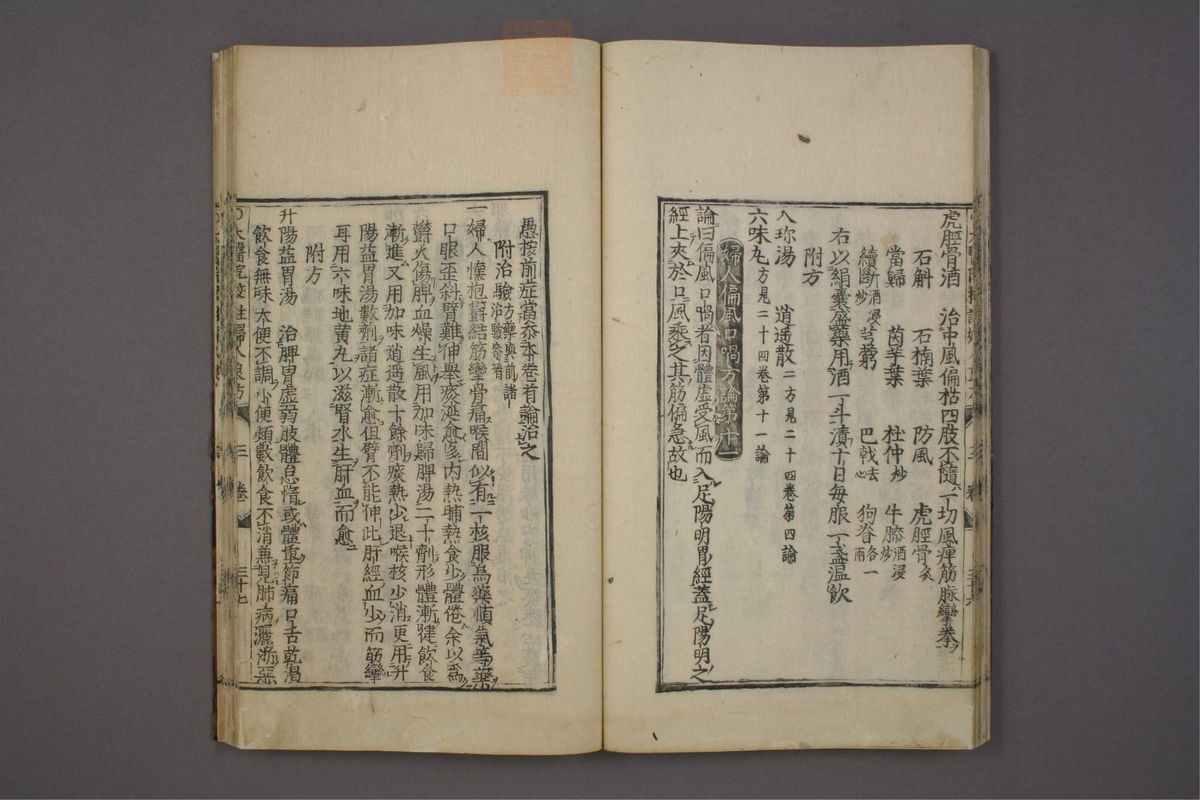 虎脛骨酒 治中風偏枯四肢不隨一切風痺筋脉攣拳
石斛 石楠葉 防風 虎脛骨炙
當歸 茵芋葉 杜仲炒 牛膝酒浸炒
續斷酒浸炒 芎藭 巴戟去心 狗脊各一兩
右以絹囊盛藥用酒一斗漬十日每服一盞温飲
附方
八珎湯 逍遥散二方見二十四卷第四論
六味丸方見二十四卷第十一論
婦人偏風口喎方論第十一
論曰偏風口喎者因體虚受風而入足陽明胃經蓋足陽明之
經上夾於口風乘之其筋偏急故也
愚按前症當叅本卷首論治之
附治驗方藥與前諸治驗叅看
一婦人懷抱欝結筋攣骨痛喉間似有一核服烏藥順氣等藥
口眼歪斜臂難伸舉痰涎愈多内熱晡熱食少體倦余以爲
欝火傷脾血燥生風用加味歸脾湯二十劑形體漸健飲食
漸進又用加味逍遥散十餘劑痰熱少退喉核少消更用升
陽益胃湯數劑諸症漸愈但臂不能伸此肝經血少而筋攣
耳用六味地黄丸以滋腎水生肝血而愈
附方
升陽益胃湯 治脾胃虚弱肢體怠惰或體重節痛口舌乾渇
飲食無味大便不調小便頻數飲食不消兼見肺病灑淅惡